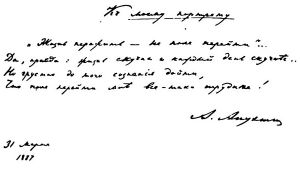 Къ моему портрету
„Жизнь пережить — не поле перейти"...
Да, правда: жизнь скучна и каждый день скучнѣе..
Но грустно до того сознанія дойти,
Что поле перейти мнѣ все-таки труднѣе!
А. Апухтинъ
31 марта
1887